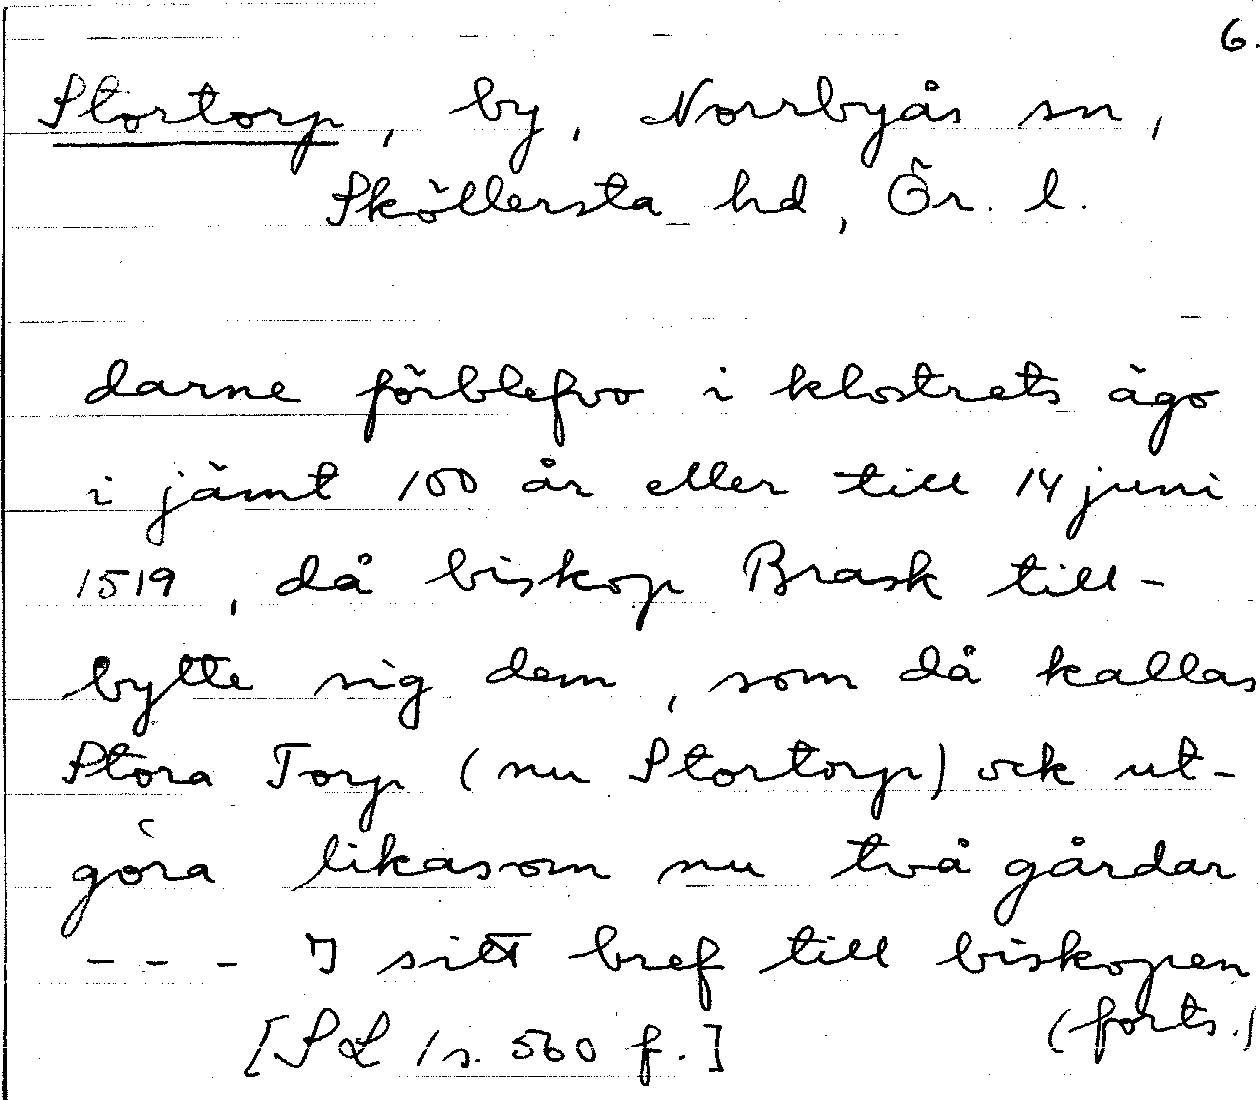 6.
Stortorp, by, Norrbyås sn,
Sköllersta hd, Ör. l.
darne förblefvo i klostrets ägo
i jämt 100 år eller till 14 juni
1519, då biskop Brask till-
bytte sig dem, som då kallas
Stora Torp (nu Stortorp) ock ut-
göra likasom nu två gårdar
- - - I sitt bref till biskopen
(forts.)
[SL 1 s. 560 f.]